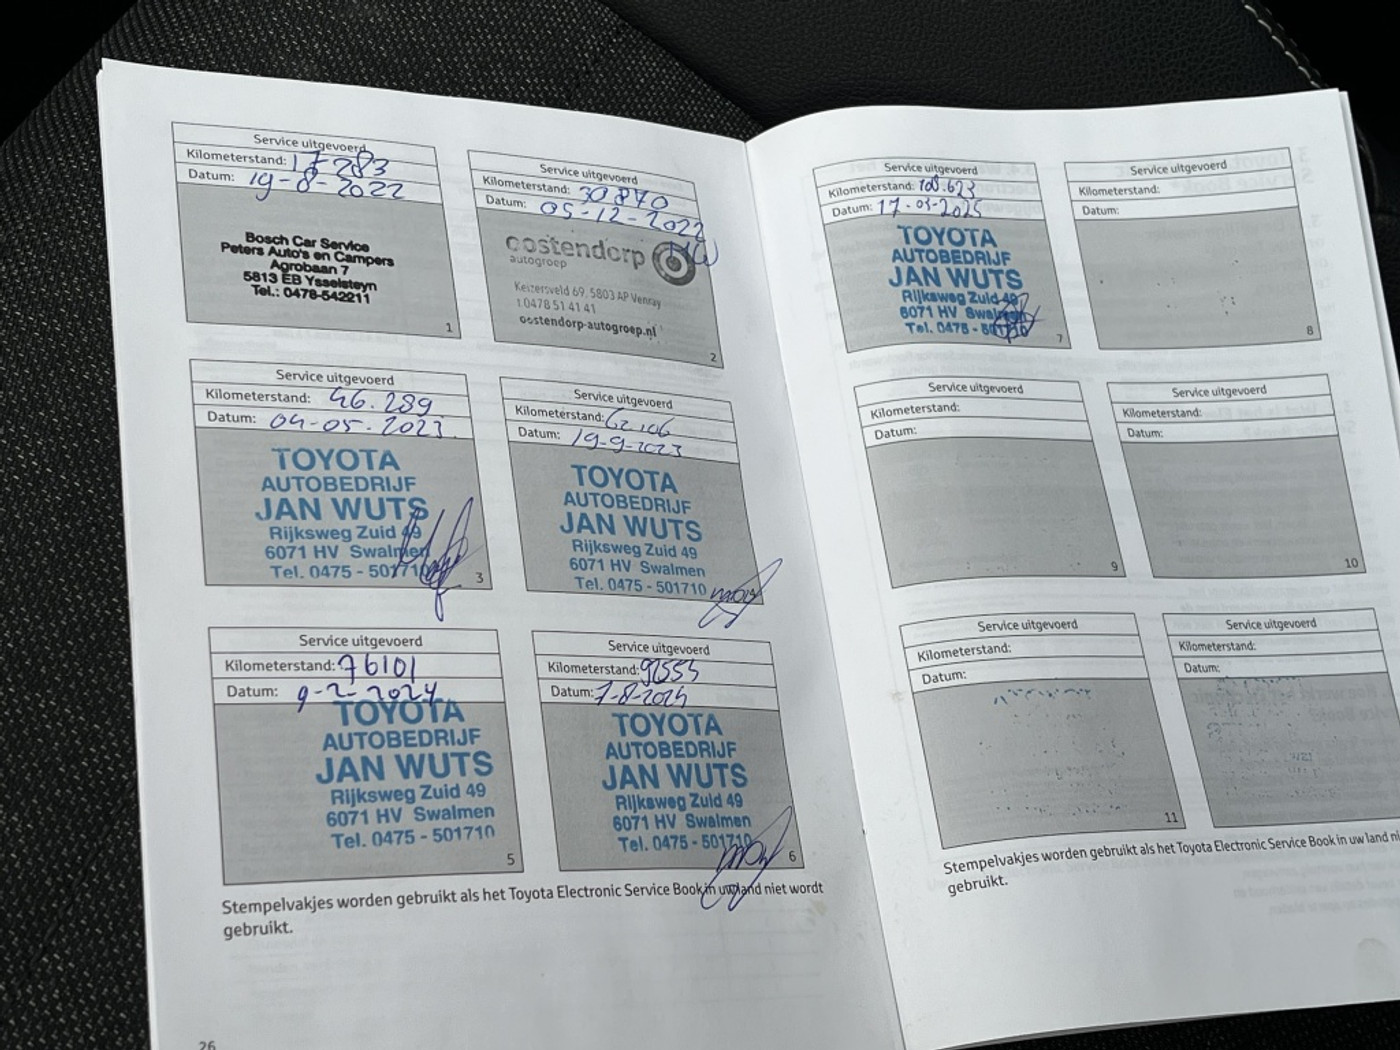 Service uitgevoerd
Kilometerstand: 17283
Datum: 19-8-2022
Bosch Car Service
Peters Auto's en Campers
Agrobaan 7
5813 EB Ysselsteyn
Tel.: 0478-542211
1
Service uitgevoerd
Kilometerstand: 30870
Datum: 05-12-2022
oostendorp
autogroep
Keizersveld 69, 5803 AP Venray
t 0478 51 41 41
oostendorp-autogroep.nl
2
Service uitgevoerd
Kilometerstand: 46.289
Datum: 04-05-2023
TOYOTA
AUTOBEDRIJF
JAN WUTS
Rijksweg Zuid 49
6071 HV Swalmen
Tel. 0475 - 501710
3
Service uitgevoerd
Kilometerstand: 62.106
Datum: 19-9-2023
TOYOTA
AUTOBEDRIJF
JAN WUTS
Rijksweg Zuid 49
6071 HV Swalmen
Tel. 0475 - 501710
Service uitgevoerd
Kilometerstand: 76101
Datum: 9-2-2024
TOYOTA
AUTOBEDRIJF
JAN WUTS
Rijksweg Zuid 49
6071 HV Swalmen
Tel. 0475 - 501710
5
Service uitgevoerd
Kilometerstand:
Datum: 7-8-2024
TOYOTA
AUTOBEDRIJF
JAN WUTS
Rijksweg Zuid 49
6071 HV Swalmen
Tel. 0475 - 501710
6
Stempelvakjes worden gebruikt als het Toyota Electronic Service Book in uw land niet wordt
gebruikt.
26
Service uitgevoerd
Kilometerstand: 108.623
Datum: 17-03-2025
TOYOTA
AUTOBEDRIJF
JAN WUTS
Rijksweg Zuid 49
6071 HV Swalmen
Tel. 0475 - 501710
7
Service uitgevoerd
Kilometerstand:
Datum:
8
Service uitgevoerd
Kilometerstand:
Datum:
9
Service uitgevoerd
Kilometerstand:
Datum:
10
Service uitgevoerd
Kilometerstand:
Datum:
11
Service uitgevoerd
Kilometerstand:
Datum:
Stempelvakjes worden gebruikt als het Toyota Electronic Service Book in uw land ni
gebruikt.